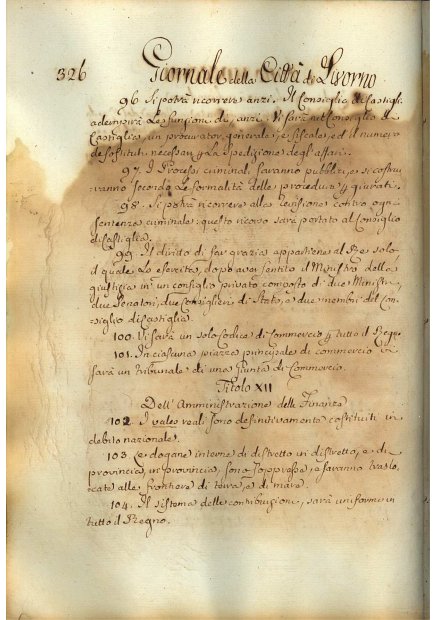 326 Giornale della Città di Livorno
96. Si potrà ricorrere anzi. Il Consiglio di Castigli.
adempirà le funzioni di, anzi: vi sarà nel Consiglio di
Castiglia, un procurator generale, e fiscale, ed il numero
de sostituti necessari la spedizione degli affari.
97. I Processi criminali saranno pubblici, e si costrui
ranno secondo le formalità delle procedura giurati.
98. Si potrà ricorrere alla contro ogni
sentenza criminale: questo ricorso sarà portato al Consiglio
di Castiglia.
99. Il diritto di far grazia appartiene al Re solo
il quale lo esercita, dopo aver sentito il Ministro della
giustizia in un consiglio privato composto di due Ministri,
due Senatori, due consiglieri di Stato, e due membri del Con
siglio di Castiglia.
100. Vi sarà un solo Codice di Commercio tutto il Regno
101. In ciascuna piazza principale di commercio vi
sarà un tribunale, di una giunta di Commercio.
Titolo XII
Dell'Amministrazione delle Finanze
102. I vales reali sono definitivamente costituiti in
debito nazionale.
103. Le dogane interne di distretto in distretto, e di
provincia, in provincia, sono soppresse, e saranno traslo
cate alle frontiere di terra, e di mare.
104. Il sistema delle contribuzioni, sarà uniforme in
tutto il Regno.